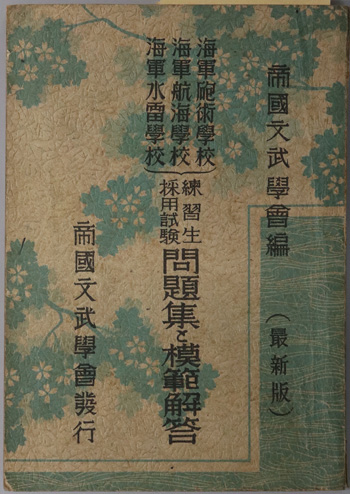 帝國文武學會編
（最新版）
海軍砲術學校
海軍航海學校
海軍水雷學校
練習生
採用試験
問題集と模範解答
帝國文武學會發行